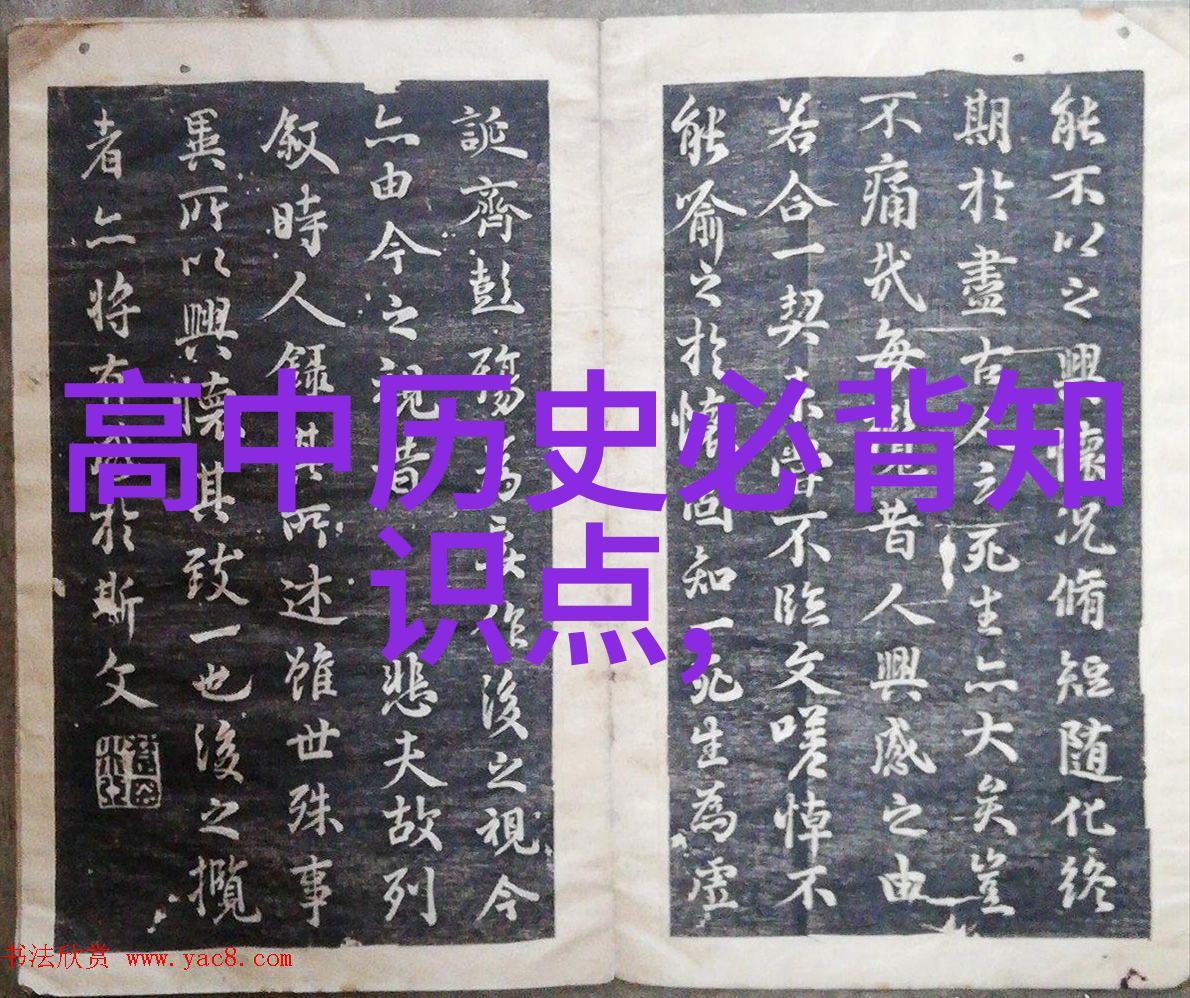 高中历史必背知
识点,
能不以之興懷况脩短随化終
期於盡古人之死生亦大矣豈
不痛哉每覽昔人興感之由
若合一契未嘗不臨文嗟悼不
能喻之於懷固知一死生為虛
誕齊彭殤為妄作後之視今
亦由今之視昔悲夫故列
叙時人錄其所述雖世殊事
異所以興懷其致一也後之攬
者亦将有感於斯文
书法欣赏 www.yac8.com